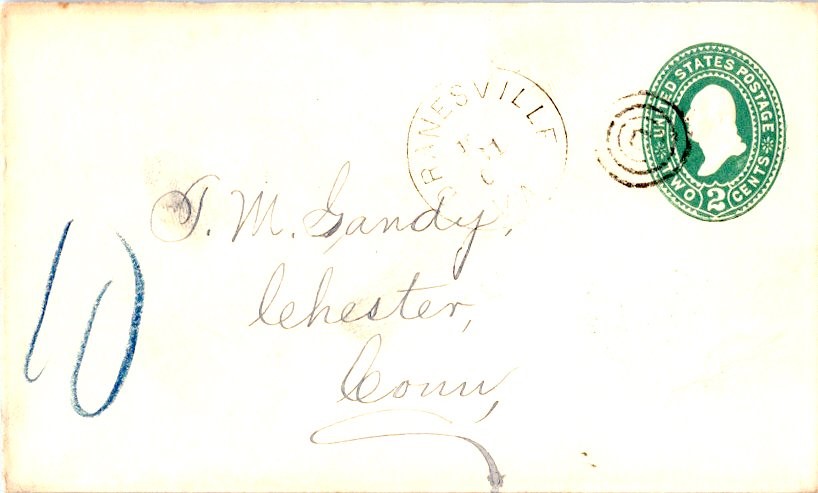 UNITED STATES POSTAGE
TWO 2 CENTS
RANESVILLE
T. M. Gandy,
Chester,
Conn,
10